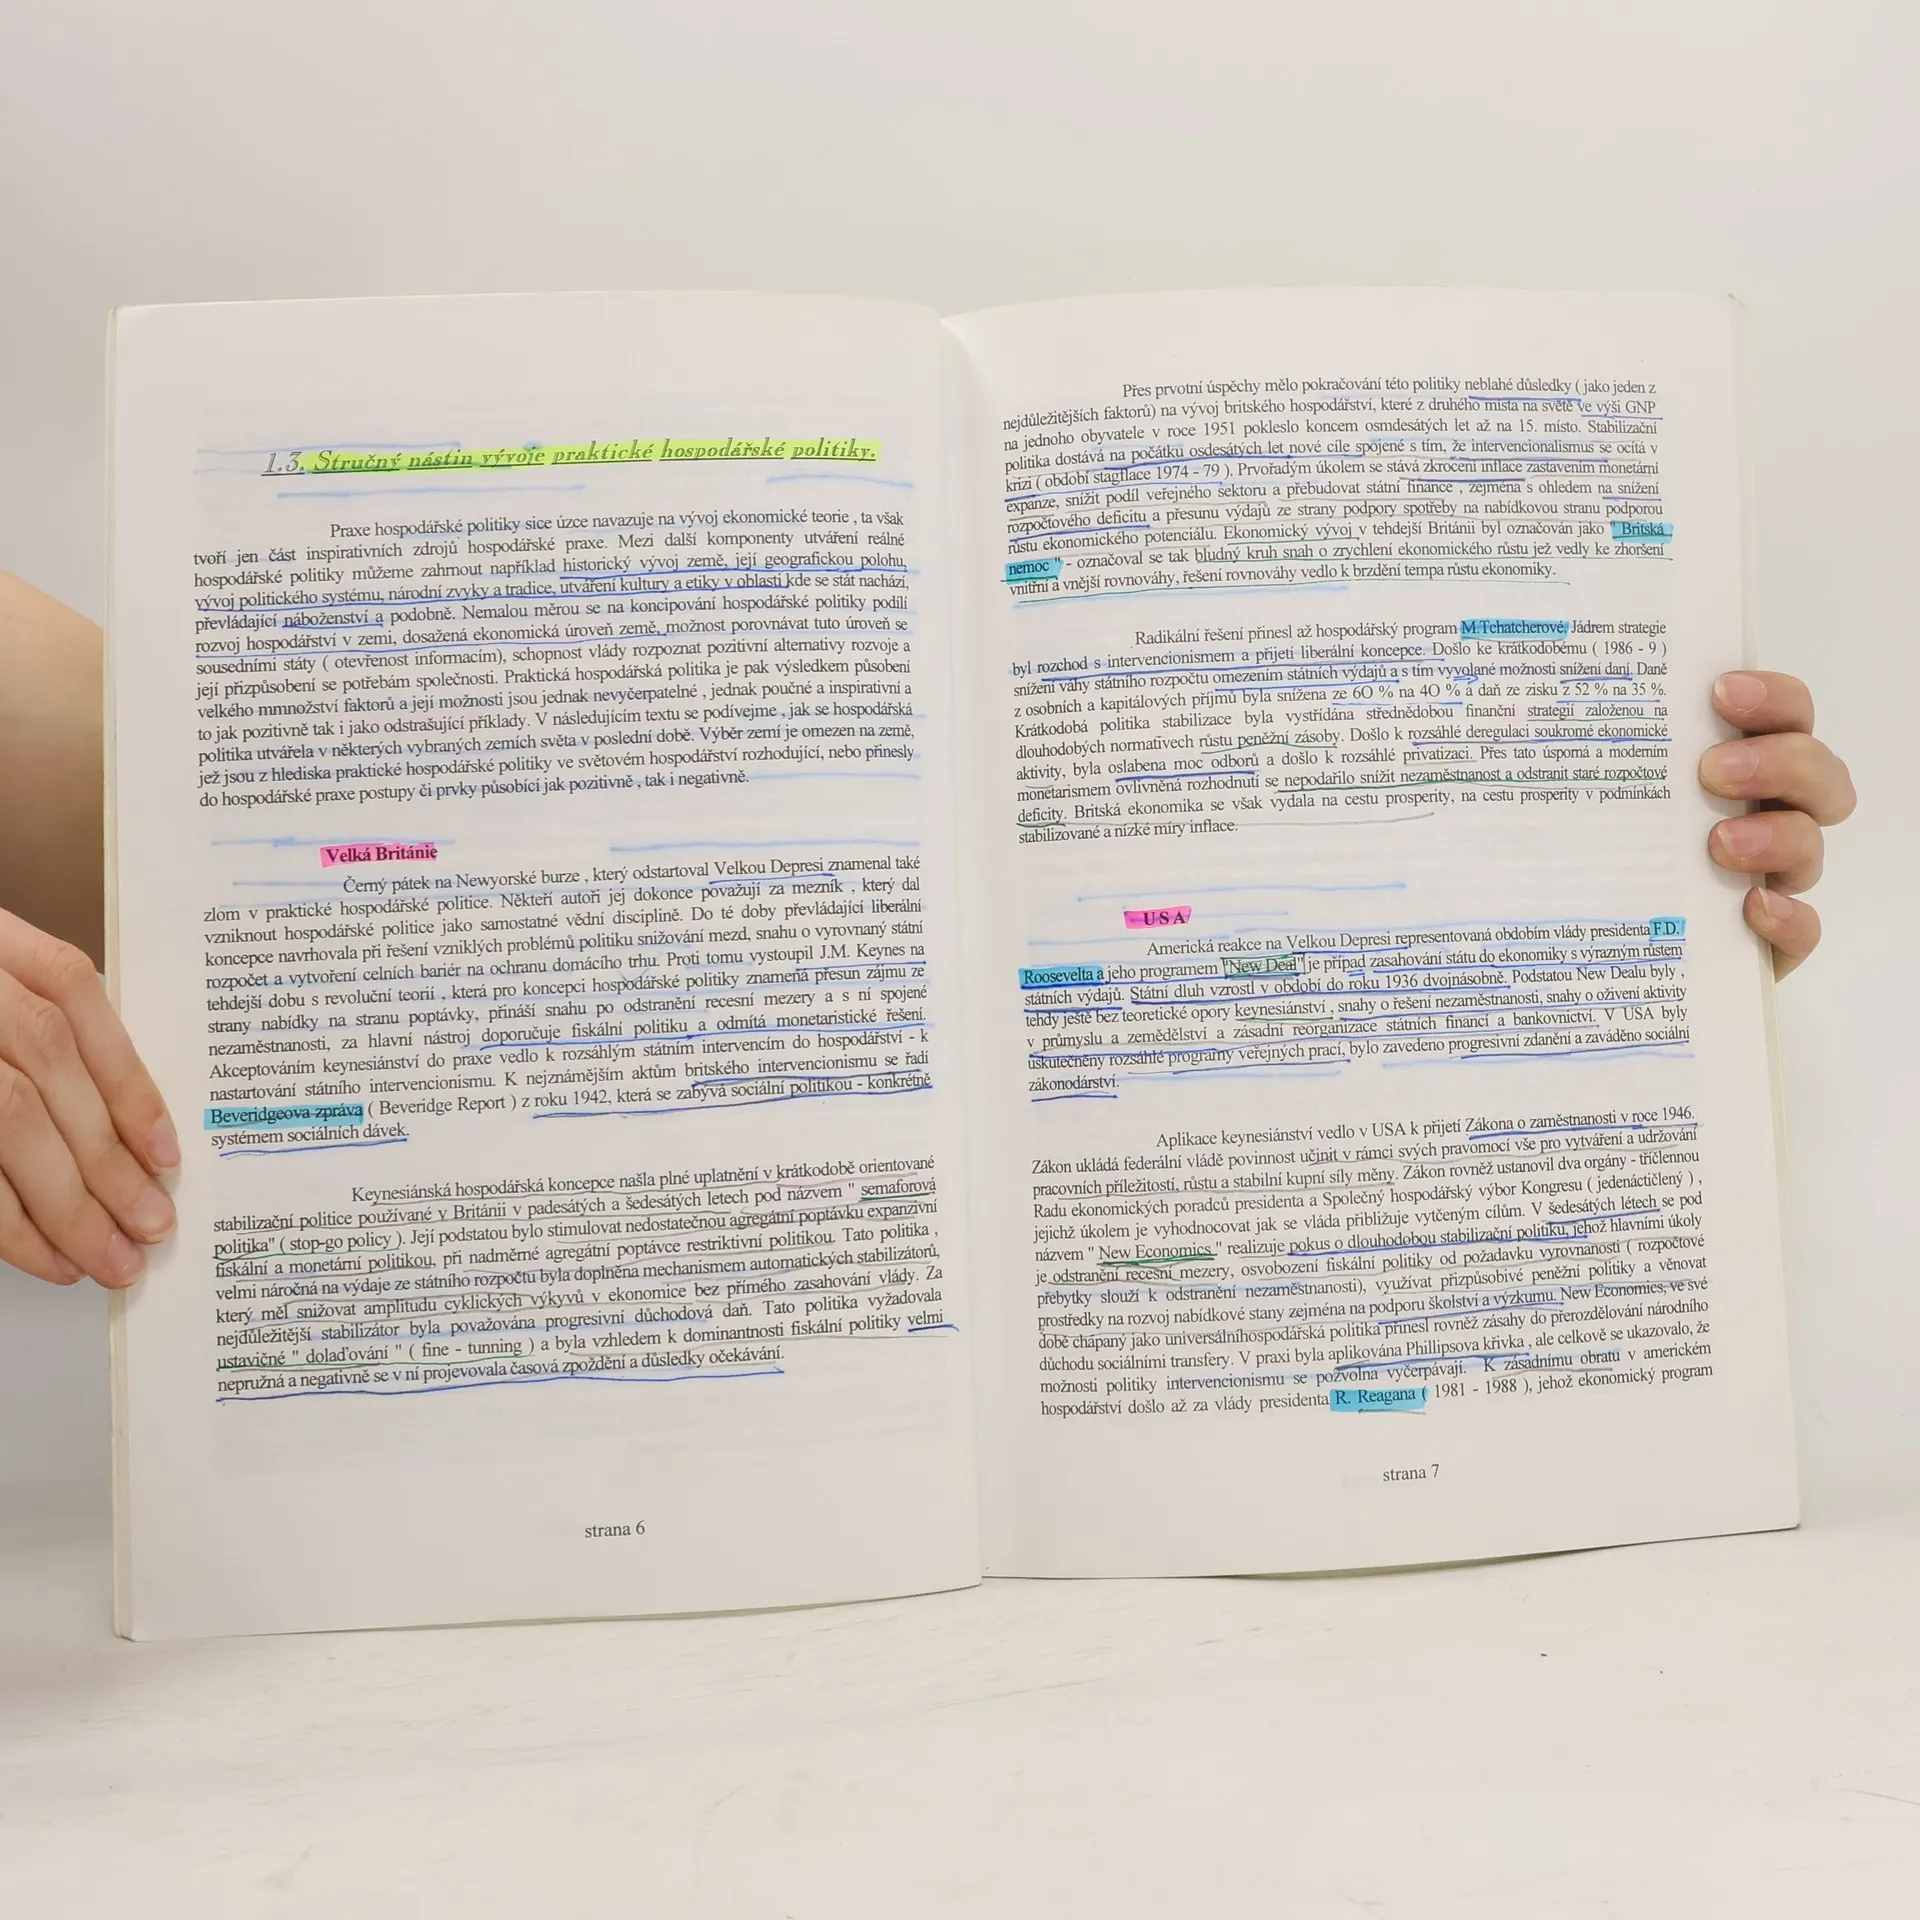 1.3. Stručný nástin vývoje praktické hospodářské politiky.
Praxe hospodářské politiky sice úzce navazuje na vývoj ekonomické teorie , ta však
tvoří jen část inspirativních zdrojů hospodářské praxe. Mezi další komponenty utváření reálné
hospodářské politiky můžeme zahrnout například historický vývoj země, její geografickou polohu,
vývoj politického systému, národní zvyky a tradice, utváření kultury a etiky v oblasti kde se stát nachází,
převládající náboženství a podobně. Nemalou měrou se na koncipování hospodářské politiky podílí
rozvoj hospodářství v zemi, dosažená ekonomická úroveň země, možnost porovnávat tuto úroveň se
sousedními státy ( otevřenost informacím), schopnost vlády rozpoznat pozitivní alternativy rozvoje a
její přizpůsobení se potřebám společnosti. Praktická hospodářská politika je pak výsledkem působení
velkého mmnožství faktorů a její možnosti jsou jednak nevyčerpatelné , jednak poučné a inspirativní a
to jak pozitivně tak i jako odstrašující příklady. V následujícím textu se podívejme , jak se hospodářská
politika utvářela v některých vybraných zemích světa v poslední době. Výběr zemí je omezen na země,
jež jsou z hlediska praktické hospodářské politiky ve světovém hospodářství rozhodující, nebo přinesly
do hospodářské praxe postupy či prvky působící jak pozitivně , tak i negativně.
Velká Británie
Černý pátek na Newyorské burze , který odstartoval Velkou Depresi znamenal také
zlom v praktické hospodářské politice. Někteří autoři jej dokonce považují za mezník , který dal
vzniknout hospodářské politice jako samostatné vědní disciplině. Do té doby převládající liberální
koncepce navrhovala při řešení vzniklých problémů politiku snižování mezd, snahu o vyrovnaný státní
rozpočet a vytvoření celních bariér na ochranu domácího trhu. Proti tomu vystoupil J.M. Keynes na
tehdejší dobu s revoluční teorií , která pro koncepci hospodářské politiky znamená přesun zájmu ze
strany nabídky na stranu poptávky, přináší snahu po odstranění recesní mezery a s ní spojené
nezaměstnanosti, za hlavní nástroj doporučuje fiskální politiku a odmítá monetaristické řešení.
Akceptováním keynesiánství do praxe vedlo k rozsáhlým státním intervencím do hospodářství - k
nastartování státního intervencionismu. K nejznámějším aktům britského intervencionismu se řadí
Beveridgeova zpráva ( Beveridge Report ) z roku 1942, která se zabývá sociální politikou - konkrétně
systémem sociálních dávek.
Keynesiánská hospodářská koncepce našla plné uplatnění v krátkodobě orientované
stabilizační politice používané v Británii v padesátých a šedesátých letech pod názvem " semaforová
politika" ( stop-go policy ). Její podstatou bylo stimulovat nedostatečnou agregátní poptávku expanzivní
fiskální a monetární politikou, při nadměrné agregátní poptávce restriktivní politikou. Tato politika ,
velmi náročná na výdaje ze státního rozpočtu byla doplněna mechanismem automatických stabilizátorů,
který měl snižovat amplitudu cyklických výkyvů v ekonomice bez přímého zasahování vlády. Za
nejdůležitější stabilizátor byla považována progresivní důchodová daň. Tato politika vyžadovala
ustavičné " dolaďování " ( fine - tunning ) a byla vzhledem k dominantnosti fiskální politiky velmi
nepružná a negativně se v ní projevovala časová zpoždění a důsledky očekávání.
strana 6
Přes prvotní úspěchy mělo pokračování této politiky neblahé důsledky ( jako jeden z
nejdůležitějších faktorů) na vývoj britského hospodářství, které z druhého místa na světě ve výši GNP
na jednoho obyvatele v roce 1951 pokleslo koncem osmdesátých let až na 15. místo. Stabilizační
politika dostává na počátku osdesátých let nové cíle spojené s tím, že intervencionalismus se ocitá v
krizi ( období stagflace 1974 - 79 ). Prvořadým úkolem se stává zkrocení inflace zastavením monetární
expanze, snížit podíl veřejného sektoru a přebudovat státní finance , zejména s ohledem na snížení
rozpočtového deficitu a přesunu výdajů ze strany podpory spotřeby na nabídkovou stranu podporou
růstu ekonomického potenciálu. Ekonomický vývoj v tehdejší Británii byl označován jako " Britská
nemoc " - označoval se tak bludný kruh snah o zrychlení ekonomického růstu jež vedly ke zhoršení
vnitřní a vnější rovnováhy, řešení rovnováhy vedlo k brzdění tempa růstu ekonomiky.
Radikální řešení přinesl až hospodářský program M.Tchatcherové. Jádrem strategie
byl rozchod s intervencionismem a přijetí liberální koncepce. Došlo ke krátkodobému ( 1986 - 9 )
snížení váhy státního rozpočtu omezením státních výdajů a s tím vyvolané možnosti snížení daní. Daně
z osobních a kapitálových příjmů byla snížena ze 60 % na 40 % a daň ze zisku z 52 % na 35 %.
Krátkodobá politika stabilizace byla vystřídána střednědobou finanční strategií založenou na
dlouhodobých normativech růstu peněžní zásoby. Došlo k rozsáhlé deregulaci soukromé ekonomické
aktivity, byla oslabena moc odborů a došlo k rozsáhlé privatizaci. Přes tato úsporná a moderním
monetarismem ovlivněná rozhodnutí se nepodařilo snížit nezaměstnanost a odstranit staré rozpočtové
deficity. Britská ekonomika se však vydala na cestu prosperity, na cestu prosperity v podmínkách
stabilizované a nízké míry inflace.
U S A
Americká reakce na Velkou Depresi representovaná obdobím vlády presidenta F.D.
Roosevelta a jeho programem "New Deal" je případ zasahování státu do ekonomiky s výrazným růstem
státních výdajů. Státní dluh vzrostl v období do roku 1936 dvojnásobně. Podstatou New Dealu byly ,
tehdy ještě bez teoretické opory keynesiánství , snahy o řešení nezaměstnanosti, snahy o oživení aktivity
v průmyslu a zemědělství a zásadní reorganizace státních financí a bankovnictví. V USA byly
uskutečněny rozsáhlé programy veřejných prací, bylo zavedeno progresivní zdanění a zaváděno sociální
zákonodárství.
Aplikace keynesiánství vedlo v USA k přijetí Zákona o zaměstnanosti v roce 1946.
Zákon ukládá federální vládě povinnost učinit v rámci svých pravomocí vše pro vytváření a udržování
pracovních příležitostí, růstu a stabilní kupní síly měny. Zákon rovněž ustanovil dva orgány - tříčlennou
Radu ekonomických poradců presidenta a Společný hospodářský výbor Kongresu ( jedenáctičlený ) ,
jejichž úkolem je vyhodnocovat jak se vláda přibližuje vytčeným cílům. V šedesátých létech se pod
názvem " New Economics " realizuje pokus o dlouhodobou stabilizační politiku, jehož hlavními úkoly
je odstranění recesní mezery, osvobození fiskální politiky od požadavku vyrovnanosti ( rozpočtové
přebytky slouží k odstranění nezaměstnanosti), využívat přizpůsobivé peněžní politiky a věnovat
prostředky na rozvoj nabídkové stany zejména na podporu školství a výzkumu. New Economics, ve své
době chápaný jako universálníhospodářská politika přinesl rovněž zásahy do přerozdělování národního
důchodu sociálními transfery. V praxi byla aplikována Phillipsova křivka , ale celkově se ukazovalo, že
možnosti politiky intervencionismu se pozvolna vyčerpávají. K zásadnímu obratu v americkém
hospodářství došlo až za vlády presidenta R. Reagana ( 1981 - 1988 ), jehož ekonomický program
strana 7